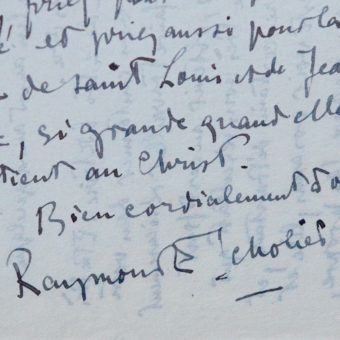 priez pour
et priez aussi pour la
de saint Louis et de Jea
, si grande quand elle
tient au Christ.
Bien cordialement à v
Raymond Escholier